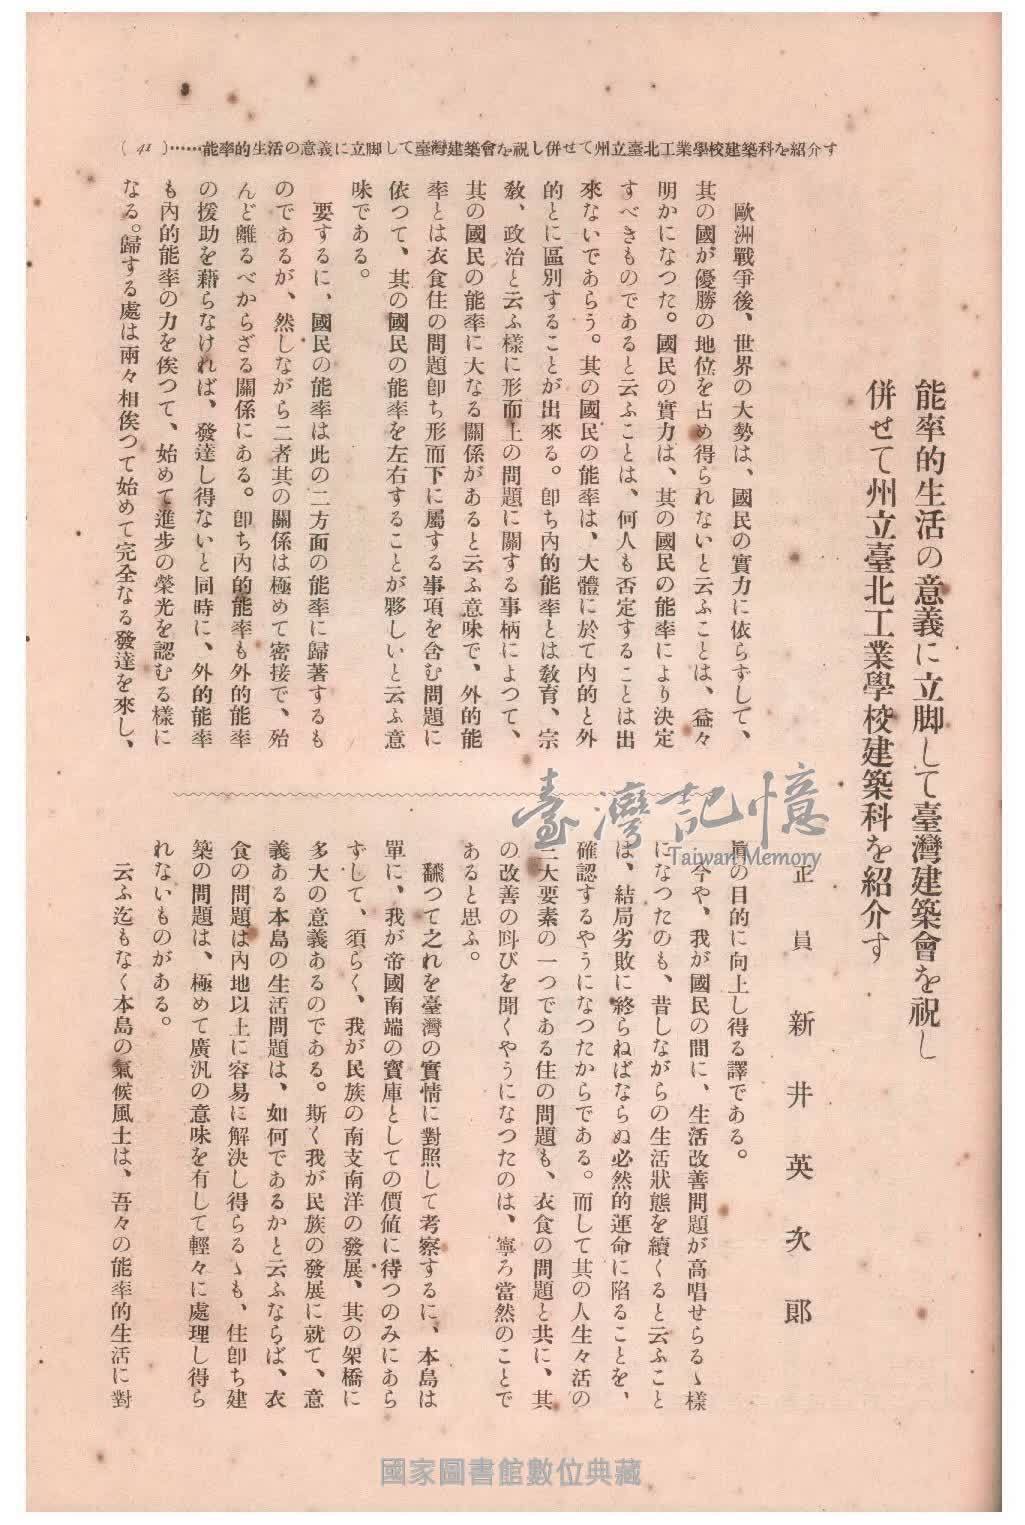 す介紹を科築建校學業工北臺立州てせ併し祝を會築建灣臺てし脚立に義意の活生的率能……( 41 )
能率的生活の意義に立脚して臺灣建築會を祝し
併せて州立臺北工業學校建築科を紹介す
正員 新井英次郎
歐洲戰爭後、世界の大勢は、國民の實力に依らずして、
其の國が優勝の地位を占め得られないと云ふことは、益々
明かになつた。國民の實力は、其の國民の能率により決定
すべきものであると云ふことは、何人も否定することは出
來ないであらう。其の國民の能率は、大體に於て内的と外
的とに區別することが出來る。卽ち内的能率とは敎育、宗
敎、政治と云ふ樣に形而上の問題に關する事柄によつて、
其の國民の能率に大なる關係があると云ふ意味で、外的能
率とは衣食住の問題卽ち形而下に屬する事項を含む問題に
依つて、其の國民の能率を左右することが夥しいと云ふ意
味である。
要するに、國民の能率は此の二方面の能率に歸著するも
のであるが、然しながら二者其の關係は極めて密接で、殆
んど離るべからざる關係にある。卽ち内的能率も外的能率
の援助を藉らなければ、發達し得ないと同時に、外的能率
も内的能率の力を俟つて、始めて進步の榮光を認むる樣に
なる。歸する處は兩々相俟つて始めて完全なる發達を來し、
眞の目的に向上し得る譯である。
今や、我が國民の間に、生活改善問題が高唱せらるゝ樣
になつたのも、昔しながらの生活狀態を續くると云ふこと
は、結局劣敗に終らねばならぬ必然的運命に陷ることを、
確認するやうになつたからである。而して其の人生々活の
三大要素の一つである住の問題も、衣食の問題と共に、其
の改善の叫びを聞くやうになつたのは、寧ろ當然のことで
あると思ふ。
飜つて之れを臺灣の實情に對照して考察するに、本島は
單に、我が帝國南端の寶庫としての價値に待つのみにあら
ずして、須らく、我が民族の南支南洋の發展、其の架橋に
多大の意義あるのである。斯く我が民族の發展に就て、意
義ある本島の生活問題は、如何であるかと云ふならば、衣
食の問題は内地以上に容易に解決し得らるゝも、住卽ち建
築の問題は、極めて廣汎の意味を有して輕々に處理し得ら
れないものがある。
云ふ迄もなく本島の氣候風土は、吾々の能率的生活に對
臺灣記憶
Taiwan Memory
國家圖書館數位典藏